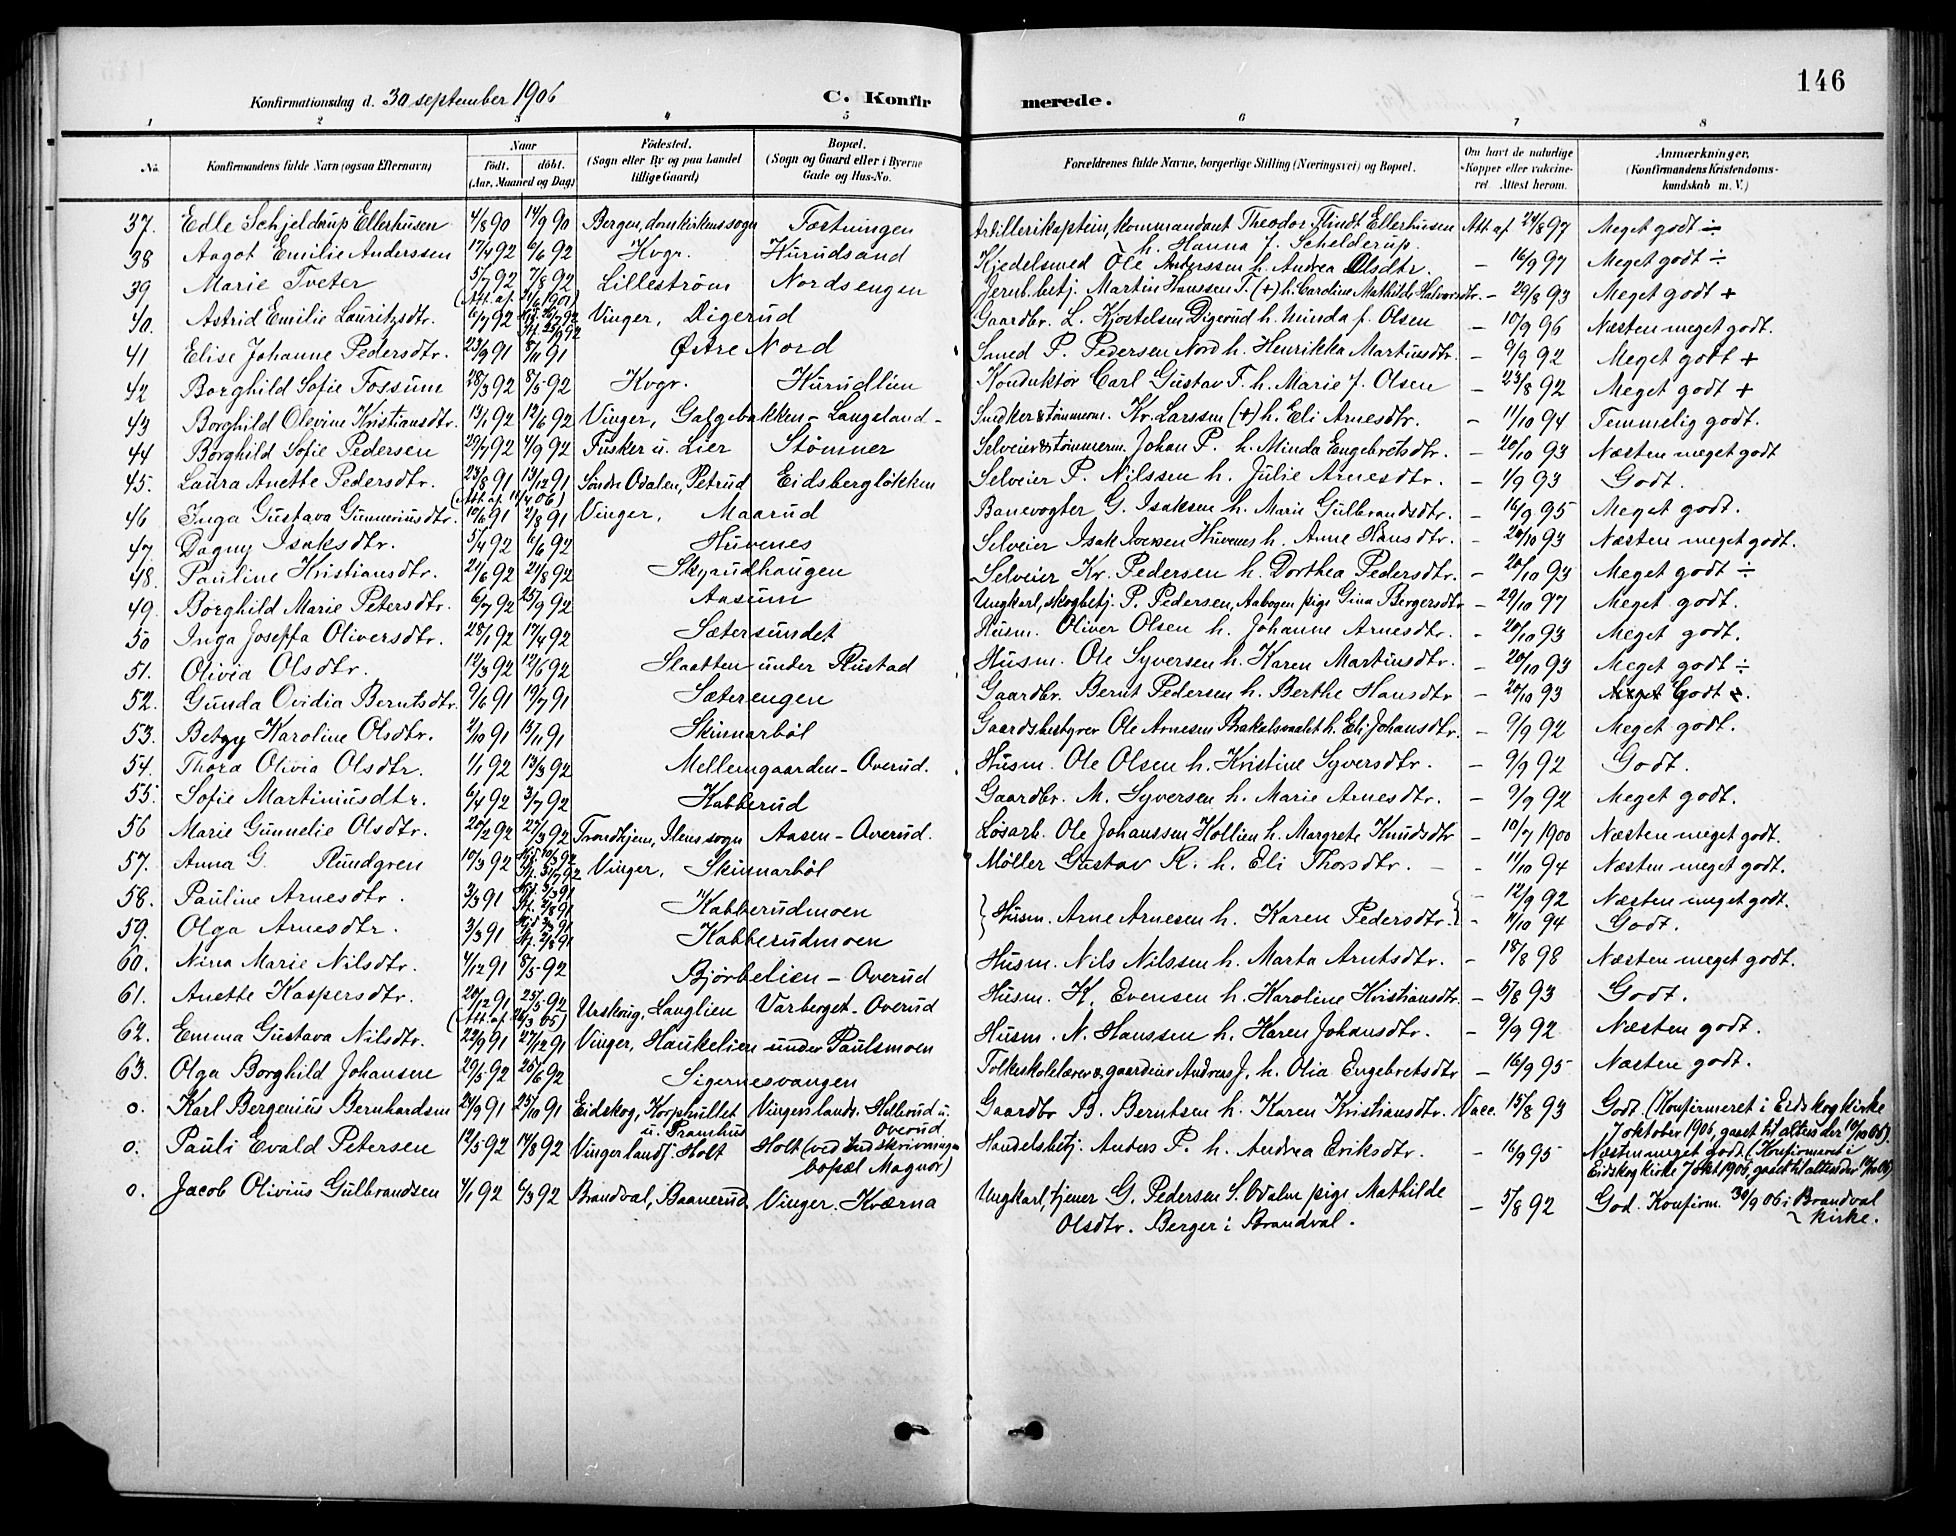 146
Konfirmationsdag d. 30 september 1906 C. Konfirmerede.
1 2 3 4 5 6 7 8
No. Konfirmandens fulde Navn (ogsaa Efternavn) Naar født. døbt. (Aar, Maaned og Dag) Födested. (Sogn eller By og paa Landet tillige Gaard) Bopæl. (Sogn og Gaard eller i Byerne Gade og Hus-No. Forældrenes fulde Navne, borgerlige Stilling (Næringsvei) og Bopæl. Om havt de naturlige Kopper eller vaccineret. Attest herom. Anmærkninger. (Konfirmandens Kristendomskundskab m. V.)
37. Edle Schjelderup Ellerhusen 4/8 90 14/9 90 Bergen, domkirkens sogn Fæstningen Artillerikaptein, kommandant Theodor Flindt Ellerhusen Att af 24/8 97 Meget godt ÷
h. Hanna f. Schelderup.
38 Aagot Emilie Anderssen 17/4 92 6/6 92 Kvgr. Hurudsand Kjedelsmed Ole Anderssen h. Andrea Olsdtr. - 16/9 97 Meget godt ÷
39 Marie Tveter 5/7 92 7/8 92 Lilleström Nordsengen Jernb.betj. Martin Hanssen T. (+) h. Caroline Mathilde Halvorsdtr. - 29/8 93 Meget godt +
40. Astrid Emilie Lauritzsdtr. 6/7 92 Vinger, Digerud Gaardbr. L. Kjostelsen Digerud h. Minda f. Olsen - 10/9 96 Næsten meget godt.
41 Elise Johanne Pedersdtr. 23/9 91 8/11 91 Østre Nord Smed P. Pedersen Nord h. Henrikka Martinsdtr. - 9/9 92 Meget godt +
42 Borghild Sofie Fossum 28/3 92 8/5 92 Kvgr. Hurudlien Konduktør Carl Gustav F. h. Marie f. Olsen - 23/8 92 Meget godt +
43 Borghild Olevine Kristiansdtr. 13/1 92 12/6 92 Vinger, Galgebakken - Langeland - Snedker & tømmerm. Kr. Larssen (+) h. Eli Arnesdtr. - 11/10 94 Temmelig godt.
44 Borghild Sofie Pedersen 29/7 92 4/9 92 Fusker u. Lier Stømner Selveier & tømmerm. Johan P. h. Minda Engebretsdtr. - 20/10 93 Næsten meget godt
45. Laura Anette Pedersdtr. 23/8 91 13/12 91 Söndre Odalen, Petrud Eidsbergløkken Selveier P. Nilssen h. Julie Arnesdtr. - 1/9 93 Godt.
46 Inga Gustava Gunneriusdtr. 10/6 91 2/8 91 Vinger, Maarud Banevogter G. Isaksen h. Marie Gulbrandsdtr. - 16/9 95 Meget godt.
47 Dagny Isaksdtr. 5/4 92 6/6 92 Huvenes Selveier Isak Iversen Huvenes h. Anne Hansdtr. - 20/10 93 Næsten meget godt.
48. Pauline Kristiansdtr. 24/6 92 21/8 92 Skjaudhaugen Selveier Kr. Pedersen h. Dorthea Pedersdtr. - 20/10 93 Meget godt ÷
49. Borghild Marie Petersdtr. 6/7 92 25/9 92 Aasum Ungkarl, skogbetj. P. Pedersen, Aabogen pige Gina Bergersdtr - 29/10 97 Meget godt.
50 Inga Joseffa Oliversdtr. 28/1 92 17/4 92 Sætersundet Husm. Oliver Olsen h. Johanne Arnesdtr. - 20/10 93 Meget godt.
51. Olivia Olsdtr. 12/3 92 12/6 92 Slaatten under Rustad Husm. Ole Syversen h. Karen Martinsdtr. - 20/10 93 Meget godt ÷
52. Gunda Ovidia Berntsdtr. 9/6 91 19/7 91 Sæterengen Gaardbr. Bernt Pedersen h. Berthe Hansdtr - 20/10 93 Godt
53. Betzy Karoline Olsdtr. 2/10 91 15/11 91 Skinnarböl Gaardsbestyrer Ole Arnesen h. Eli Johansdtr. - 9/9 92 Meget godt.
54. Thora Olivia Olsdtr. 1/1 92 13/3 92 Mellemgaarden - Overud. Husm. Ole Olsen h. Kristine Syversdtr. - 9/9 92 Godt.
55. Sofie Martiniusdtr. 6/4 92 3/7 92 Kabberud Gaardbr. M. Syversen h. Marie Arnesdtr. - 9/9 92 Meget godt.
56 Marie Gunnelie Olsdtr. 20/2 92 27/3 92 Trondhjem, Ilens sogn Aasen - Overud. Løsarb. Ole Johanssen Kollien h. Margrete Knudsdtr - 10/7 1900 Næsten meget godt.
57. Anna G. Rundgren 10/3 92 Vinger, Skinnarböl Møller Gustav R. h. Eli Thorsdtr. - 11/10 94 Næsten meget godt.
58. Pauline Arnesdtr. 3/3 91 Kabberudmoen Husm. Arne Arnesen h. Karen Pedersdtr. - 12/9 92 Næsten meget godt.
59. Olga Arnesdtr. 3/3 91 Kabberudmoen - 11/10 94 Godt.
60. Nina Marie Nilsdtr. 4/12 91 8/5 92 Bjørbelien - Overud Husm. Nils Nilssen h. Marta Arntsdtr. - 18/8 98 Næsten meget godt.
61. Anette Kaspersdtr. 20/12 91 25/5 92 Urskoug, Langlien Varberget - Overud Husm. K. Evensen h. Karoline Kristiansdtr - 5/8 93 Godt.
62. Emma Gustava Nilsdtr. 22/9 91 27/12 91 Vinger, Haukelien under Paulsmoen Husm. N. Hanssen h. Karen Johansdtr. - 9/9 92 Næsten godt.
63. Olga Borghild Johansen 29/5 92 26/6 92 Sigernesvangen Folkeskolelærer & gaardeier Andreas J. h. Olia Engebretsdtr - 16/9 95 Næsten godt.
o. Karl Bergenius Bernhardsen 24/9 91 25/10 91 Eidskog, Korphullet u. Pramhus Vingerslandr. Hellerud u. Overud Gaardbr B. Berntsen h. Karen Kristiansdtr. Vacc. 15/8 93 Godt. (Konfirmeret i Eidskog kirke
7 oktober 1906, gaaet til alters der
o. Pauli Evald Petersen 12/5 92 14/8 92 Vinger landf. Holt Holt (ved Indskrivningen bopæl Magnor) Handelsbetj. Anders P. h. Andrea Eriksdtr. - 16/9 95 Næsten meget godt (Konfirmeret i
Eidskog kirke 7 okt 1906, gaaet til alters der
o. Jacob Olivius Gulbrandsen 4/1 92 6/3 92 Brandval, Baanerud, Vinger. Kværna Ungkarl, tjener G. Pedersen S. Odalen pige Mathilde - 5/8 92 God. Konfirm. 30/9 06 i Brandval
Olsdtr. Berger i Brandval. kirke.